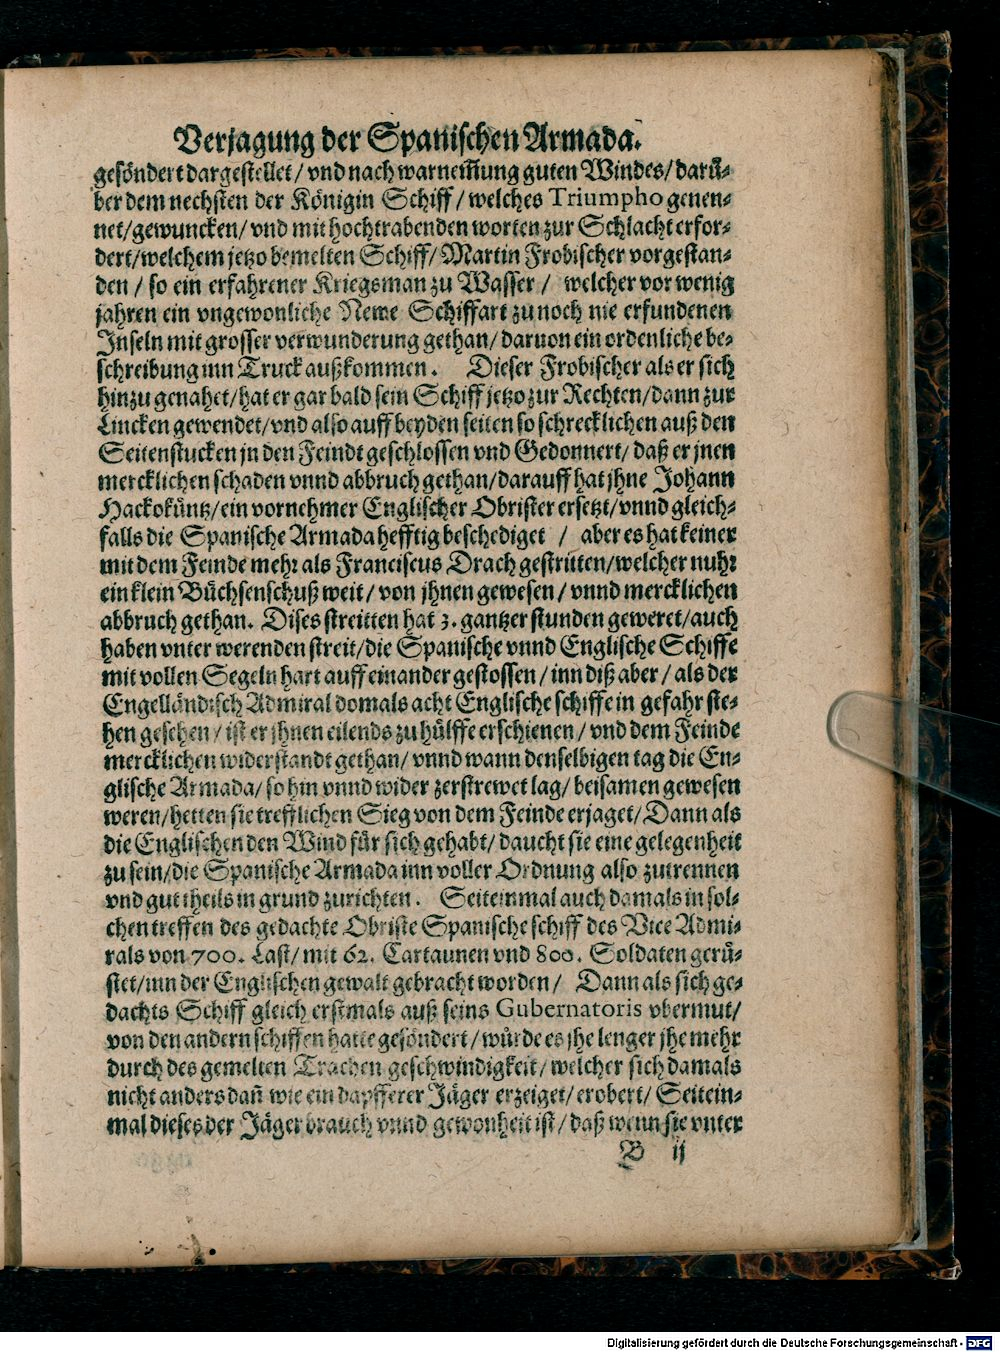 Verjagung der Spanischen Armada.
gesöndert dargestellet / vnd nach warnem̃ung guten Windes / darü-
ber dem nechsten der Königin Schiff / welches Triumpho genen-
net / gewuncken / vnd mit hochtrabenden worten zur Schlacht erfor-
dert / welchem jetzo bemelten Schiff / Martin Frobischer vorgestan-
den / so ein erfahrener Kriegsman zu Wasser / welcher vor wenig
jahren ein vngewonliche Newe Schiffart zu noch nie erfundenen
Inseln mit grosser verwunderung gethan / daruon ein ordenliche be-
schreibung inn Truck außkommen. Dieser Frobischer als er sich
hinzu genahet / hat er gar bald sein Schiff jetzo zur Rechten / dann zur
Lincken gewendet / vnd also auff beyden seiten so schrecklichen auß den
Seitenstucken in den Feindt geschlossen vnd Gedonnert / daß er jnen
mercklichen schaden vnnd abbruch gethan / darauff hat jhne Johann
Hackoküntz / ein vornehmer Englischer Obrister ersetzt / vnnd gleich-
falls die Spanische Armada hefftig beschediget / aber es hat keiner
mit dem Feinde mehr als Franciscus Drach gestritten / welcher nuhr
ein klein Büchsenschuß weit / von jhnen gewesen / vnnd mercklichen
abbruch gethan. Dises streitten hat 3. gantzer stunden geweret / auch
haben vnter werenden streit / die Spanische vnnd Englische Schiffe
mit vollen Segeln hart auff einander gestossen / inn diß aber / als der
Engelländisch Admiral domals acht Englische schiffe in gefahr ste-
hen gesehen / ist er jhnen eilends zu hülffe erschienen / vnd dem Feinde
mercklichen widerstandt gethan / vnnd wann denselbigen tag die En-
glische Armada / so hin vnnd wider zerstrewet lag / beisamen gewesen
weren / hetten sie trefflichen Sieg von dem Feinde erjaget / Dann als
die Englischen den Wind für sich gehabt / daucht sie eine gelegenheit
zu sein / die Spanische Armada inn voller Ordnung also zutrennen
vnd gut theils in grund zurichten. Seiteinmal auch damals in sol-
chen treffen des gedachte Obriste Spanische schiff des Vice Admi-
rals von 700. Last / mit 62. Cartaunen vnd 800. Soldaten gerü-
stet / inn der Englischen gewalt gebracht worden / Dann als sich ge-
dachts Schiff gleich erstmals auß seins Gubernatoris vbermut /
von den andern schiffen hatte gesöndert / würde es jhe lenger jhe mehr
durch des gemelten Trachen geschwindigkeit / welcher sich damals
nicht anders dañ wie ein dapfferer Jäger erzeiget / erobert / Seitein-
mal dieses der Jäger brauch vnnd gewonheit ist / daß wenn sie vnter
B ij
Digitalisierung gefördert durch die Deutsche Forschungsgemeinschaft - DFG